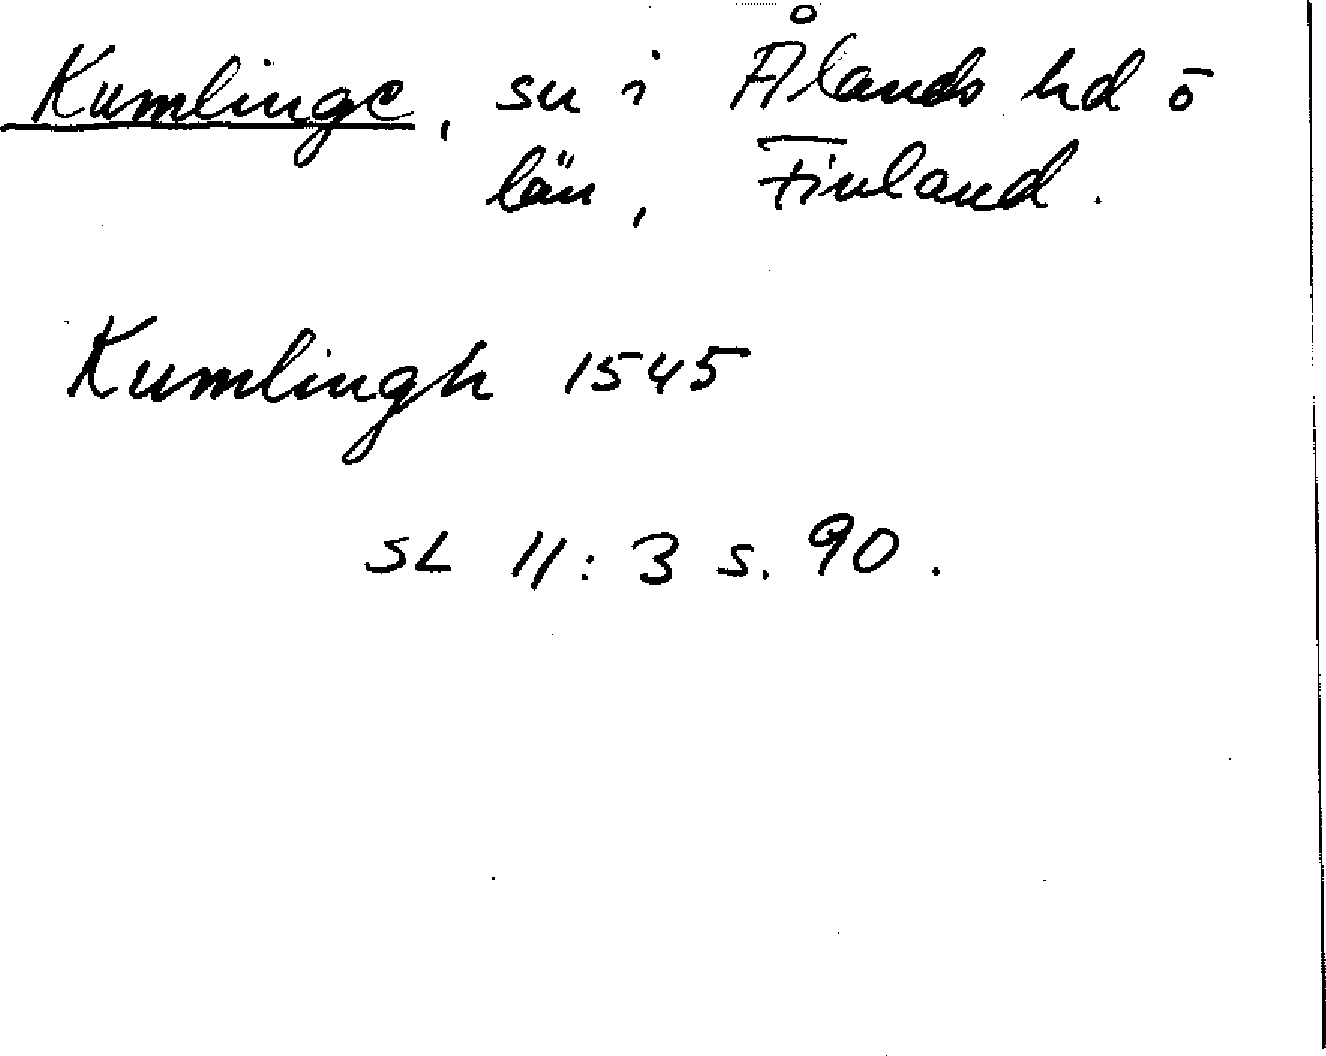 Kumlinge, sn i Ålands hd ō
län, Finland.
Kumlingh 1545
SL 11:3 s. 90.